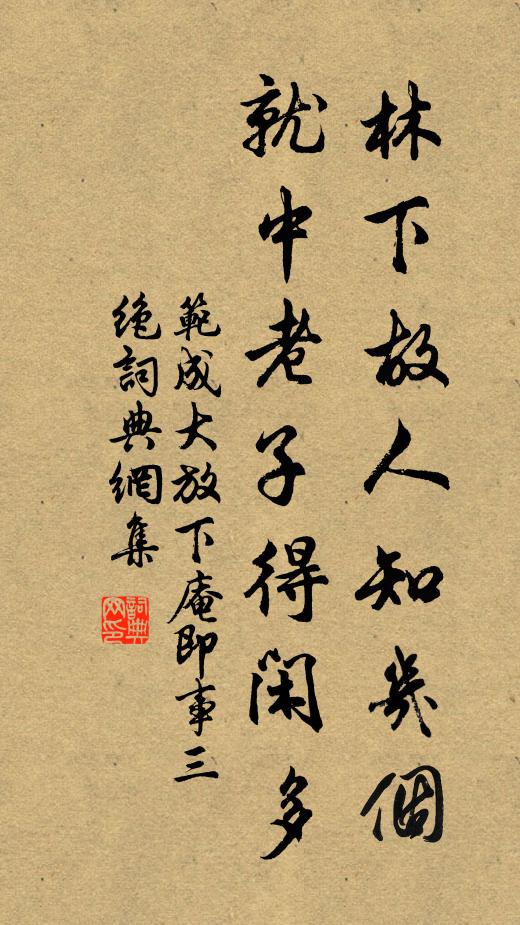 林下故人知幾個
就中老子得閑多
範成大放下庵即事三
絶詞典網集
詞典
网印